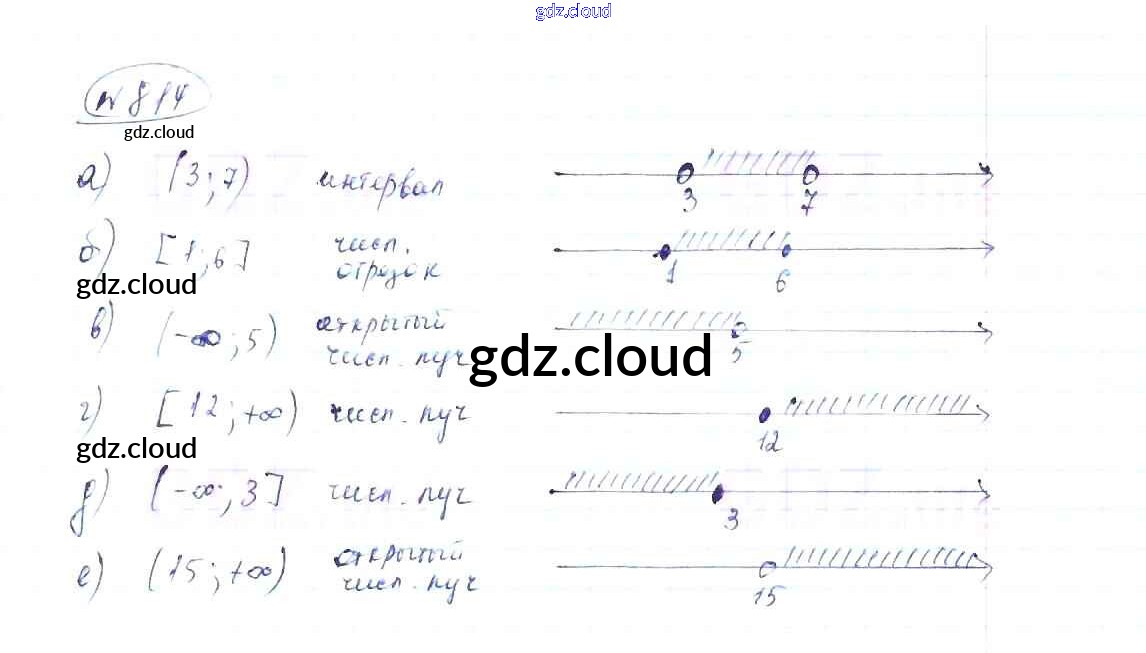 gdz.cloud
№ 814
gdz.cloud
а) (3; 7) интервал
3 7
б) [1; 6] числ. отрезок
1 6
gdz.cloud
в) (-∞; 5) открытый числ. луч
5
gdz.cloud
г) [12; +∞) числ. луч
12
gdz.cloud
д) (-∞; 3] числ. луч
3
е) (15; +∞) открытый числ. луч
15